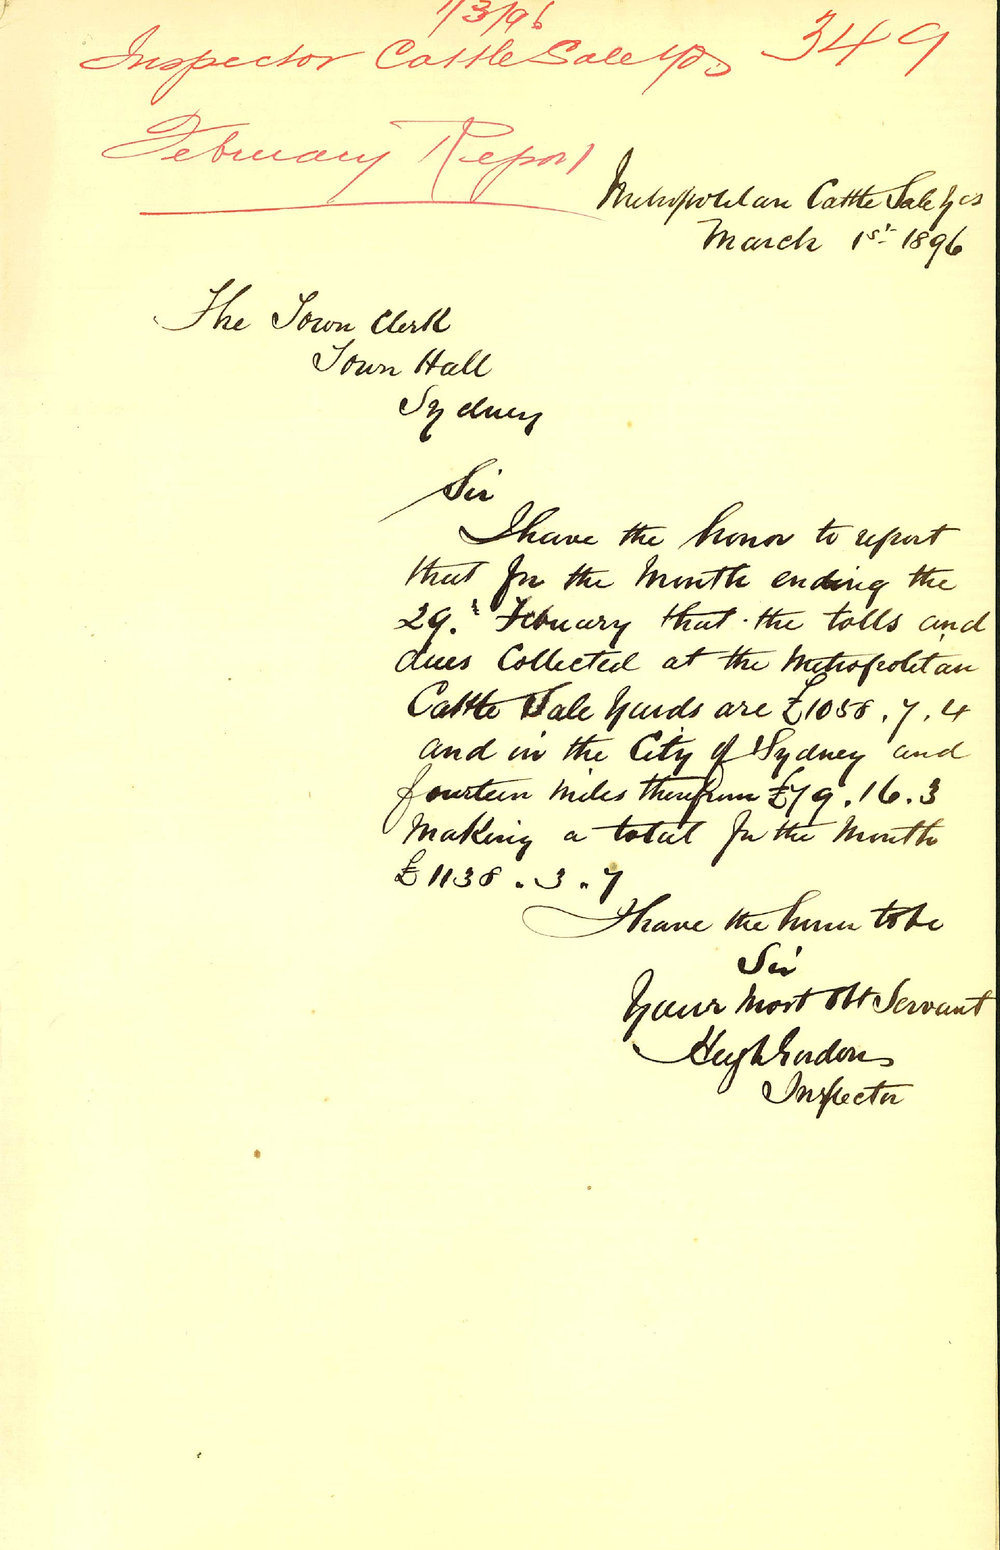 1/3/96
Inspector Cattle Sale Yds 349
February Report
Metropolitan Cattle Sale Yds
March 1st 1896
The Town Clerk
Town Hall
Sydney
Sir
I have the honor to report
that for the Month ending the
29.t February that the tolls and
dues Collected at the Metropolitan
Cattle Sale Yards are £1058.7.4
and in the City of Sydney and
fourteen Miles therefrom £79.16.3
Making a total for the Month
£1138.3.7
I have the honor to be
Sir
Your Most Obt Servant
Hugh Gordon
Inspector